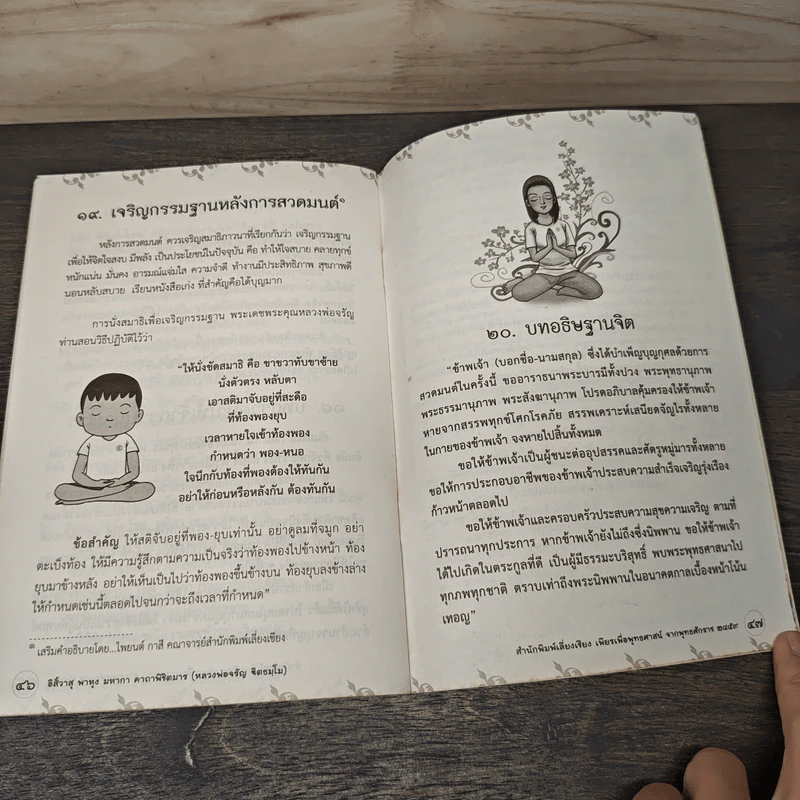 ๑๙. เจริญกรรมฐานหลังการสวดมนต์๑
หลังการสวดมนต์ ควรเจริญสมาธิภาวนาที่เรียกกันว่า เจริญกรรมฐาน
เพื่อให้จิตใจสงบ มีพลัง เป็นประโยชน์ในปัจจุบัน คือ ทำให้ใจสบาย คลายทุกข์
หนักแน่น มั่นคง อารมณ์แจ่มใส ความจำดี ทำงานมีประสิทธิภาพ สุขภาพดี
นอนหลับสบาย เรียนหนังสือเก่ง ที่สำคัญคือได้บุญมาก
การนั่งสมาธิเพื่อเจริญกรรมฐาน พระเดชพระคุณหลวงพ่อจรัญ
ท่านสอนวิธีปฏิบัติไว้ว่า
"ให้นั่งขัดสมาธิ คือ ขาขวาทับขาซ้าย
นั่งตัวตรง หลับตา
เอาสติมาจับอยู่ที่สะดือ
ที่ท้องพองยุบ
เวลาหายใจเข้าท้องพอง
กำหนดว่า พอง-หนอ
ใจนึกกับท้องที่พองต้องให้ทันกัน
อย่าให้ก่อนหรือหลังกัน ต้องทันกัน
ข้อสำคัญ ให้สติจับอยู่ที่พอง-ยุบเท่านั้น อย่าดูลมที่จมูก อย่า
ตะเบ็งท้อง ให้มีความรู้สึกตามความเป็นจริงว่าท้องพองไปข้างหน้า ท้อง
ยุบมาข้างหลัง อย่าให้เห็นเป็นไปว่าท้องพองขึ้นข้างบน ท้องยุบลงข้างล่าง
ให้กำหนดเช่นนี้ตลอดไปจนกว่าจะถึงเวลาที่กำหนด"
๑ เสริมคำอธิบายโดย...ไพยนต์ กาสี คณาจารย์สำนักพิมพ์เลี่ยงเชียง
๔๖ อิสิ์วาสุ พาหุง มหากา คาถาพิชิตมาร (หลวงพ่อจรัญ ฐิตธมฺโม)
๒๐. บทอธิษฐานจิต
"ข้าพเจ้า (บอกชื่อ-นามสกุล) ซึ่งได้บำเพ็ญบุญกุศลด้วยการ
สวดมนต์ในครั้งนี้ ขออาราธนาพระบารมีทั้งปวง พระพุทธานุภาพ
พระธรรมานุภาพ พระสังฆานุภาพ โปรดอภิบาลคุ้มครองให้ข้าพเจ้า
หายจากสรรพทุกข์โศกโรคภัย สรรพเคราะห์เสนียดจัญไรทั้งหลาย
ในกายของข้าพเจ้า จงหายไปสิ้นทั้งหมด
ขอให้ข้าพเจ้าเป็นผู้ชนะต่ออุปสรรคและศัตรูหมู่มารทั้งหลาย
ขอให้การประกอบอาชีพของข้าพเจ้าประสบความสำเร็จเจริญรุ่งเรือง
ก้าวหน้าตลอดไป
ขอให้ข้าพเจ้าและครอบครัวประสบความสุขความเจริญ ตามที่
ปรารถนาทุกประการ หากข้าพเจ้ายังไม่ถึงซึ่งนิพพาน ขอให้ข้าพเจ้า
ได้ไปเกิดในตระกูลที่ดี เป็นผู้มีธรรมะบริสุทธิ์ พบพระพุทธศาสนาไป
ทุกภพทุกชาติ ตราบเท่าถึงพระนิพพานในอนาคตกาลเบื้องหน้าโน้น
เทอญ"
สำนักพิมพ์เลี่ยงเชียง เพียรเพื่อพุทธศาสน์ จากพุทธศักราช ๒๔๕๙ ๔๗